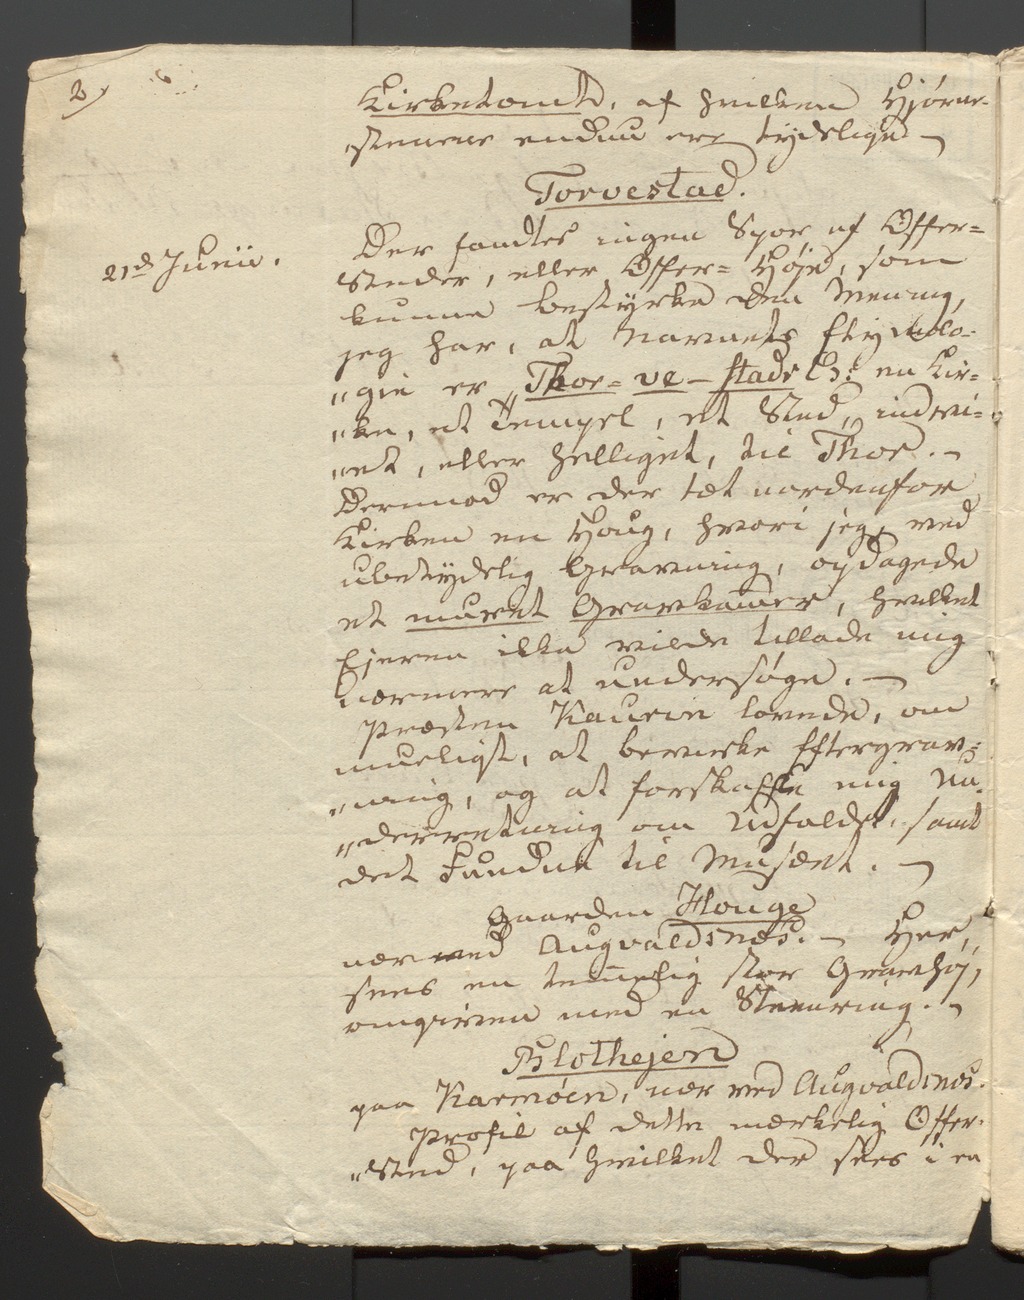 2/
Kirketomt, af hvilken Hjørne-
stenene endnu ere tydelige –
Torvestad.
21d Junii.
Der fandtes ingen Spor af Offer=
Steder, eller Offer= Høje, som
kunne bestyrke den Mening,
jeg har, at Navnets Etymolo-
„gie er „Thor= ve – stadr ɔ: en Kir=
„ke, et Tempel, et Sted, indvi=
„et, eller helliget, til Thor. –
Dermod er der tæt nordenfor
Kirken en Houg, hvori jeg, ved
ubetydelig Gravning, opdagede
et muret Gravkamer, hvilket
Ejeren ikke vilde tillade mig
nærmere at undersøge. –
Præsten Kaurin lovede, om
mueligt, at bevirke Eftergrav=
„ning, og at forskaffe mig Un-
„derretning om Udfaldet, samt
det Fundne til Musæet. –
Gaarden Houge
nær ved Augvaldsnæs. – Her,
sees en temelig stor Gravhøj,
omgiven med en Steenring. –
Blothejen
paa Karmøen, nær ved Augvaldsnæs.
Profil af dette mærkelig Offer-
„Sted, paa hvilket der sees i en